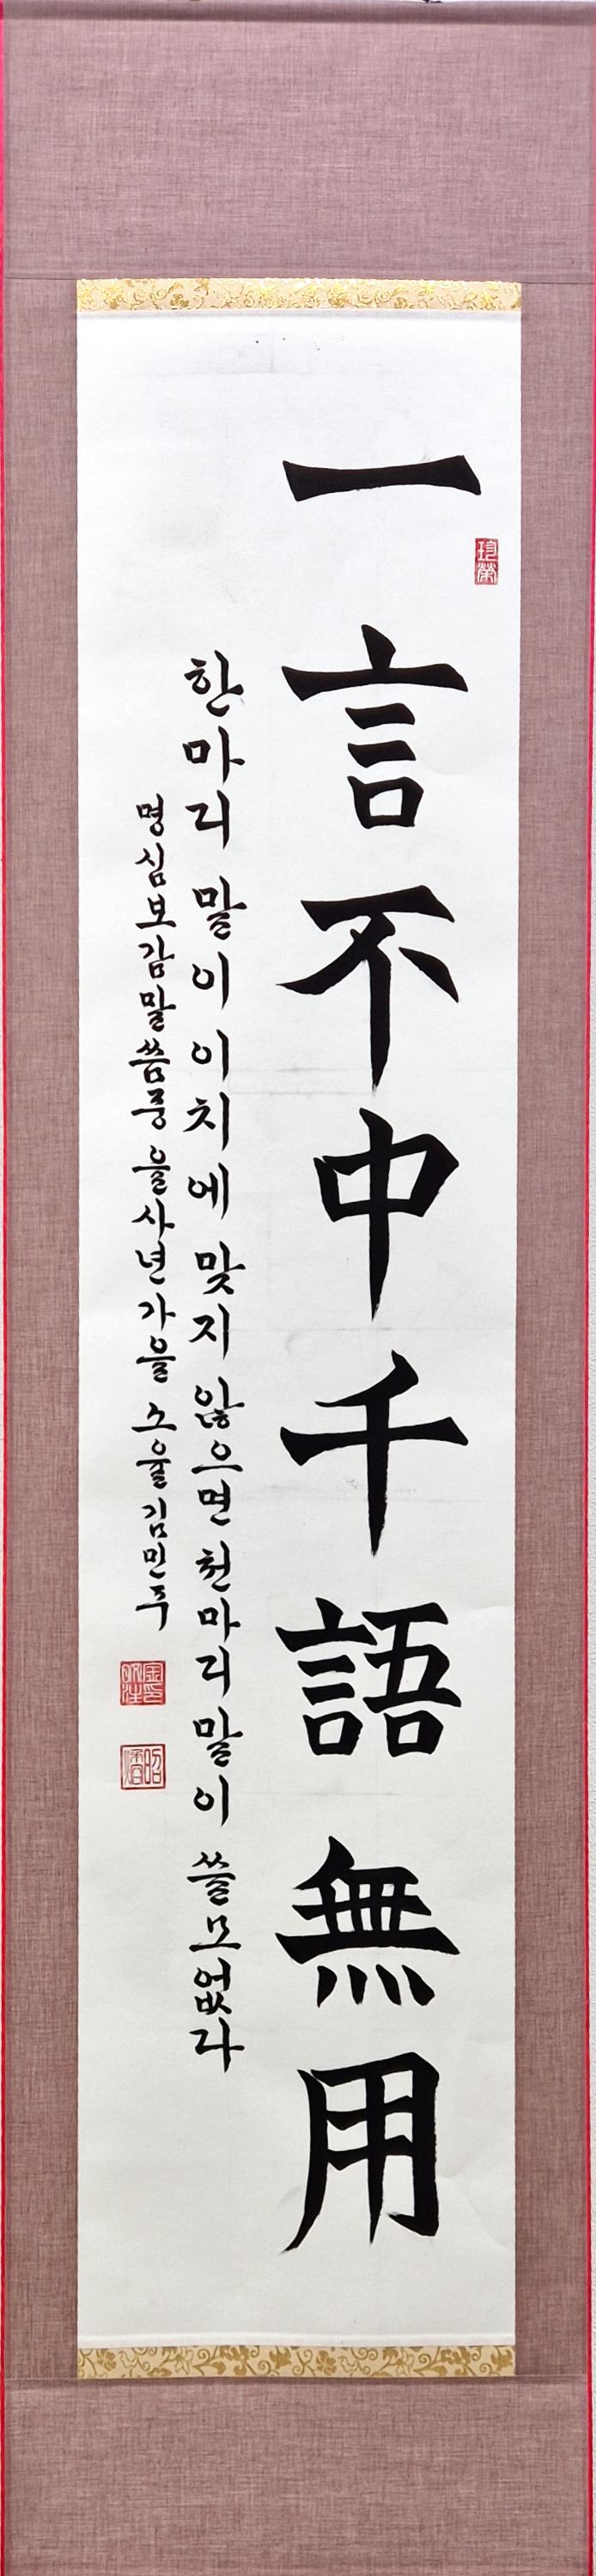 一言不中千語無用
한마리 말이 이치에 맞지 않으면 천마리 말이 쓸모없다
명심보감 말씀중 을사년 가을 소율 김민주